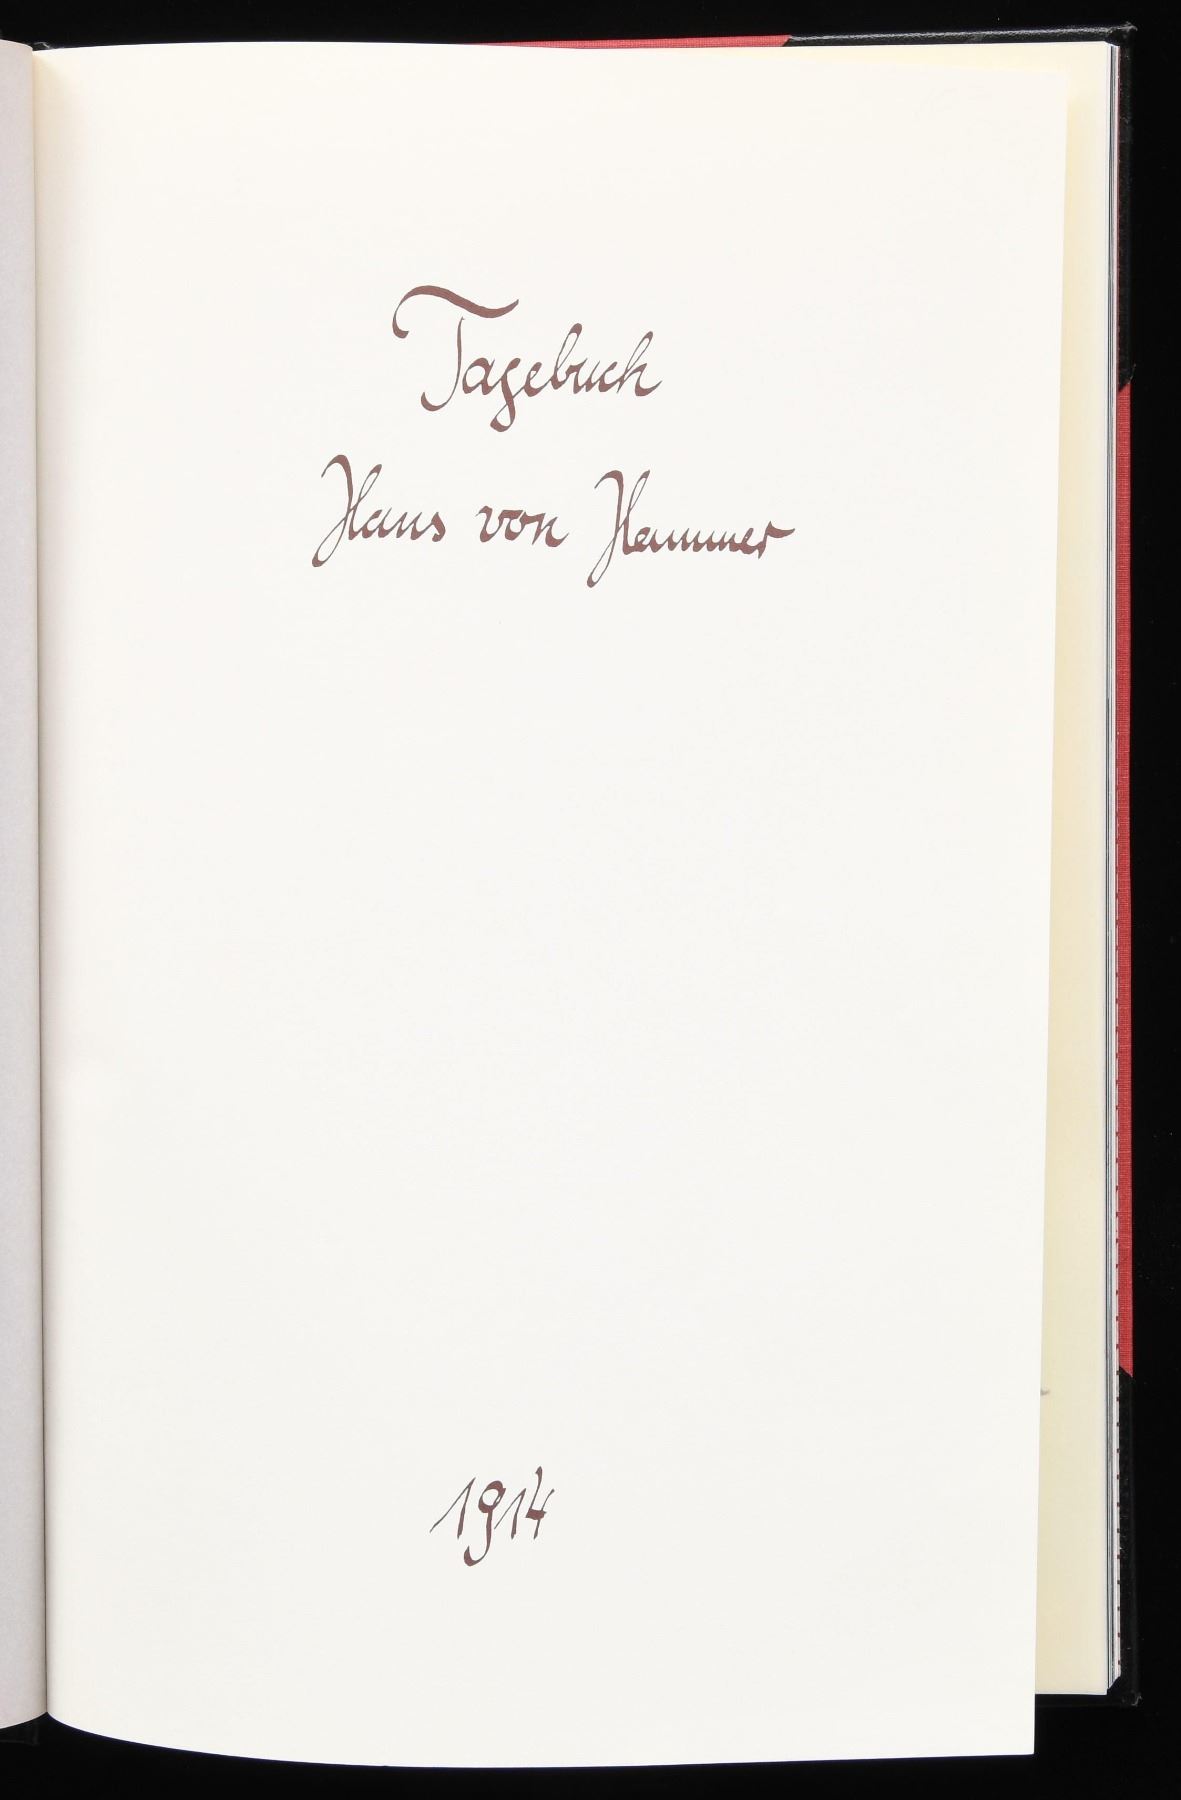 Tagebuch
Hans von Hammer
1914